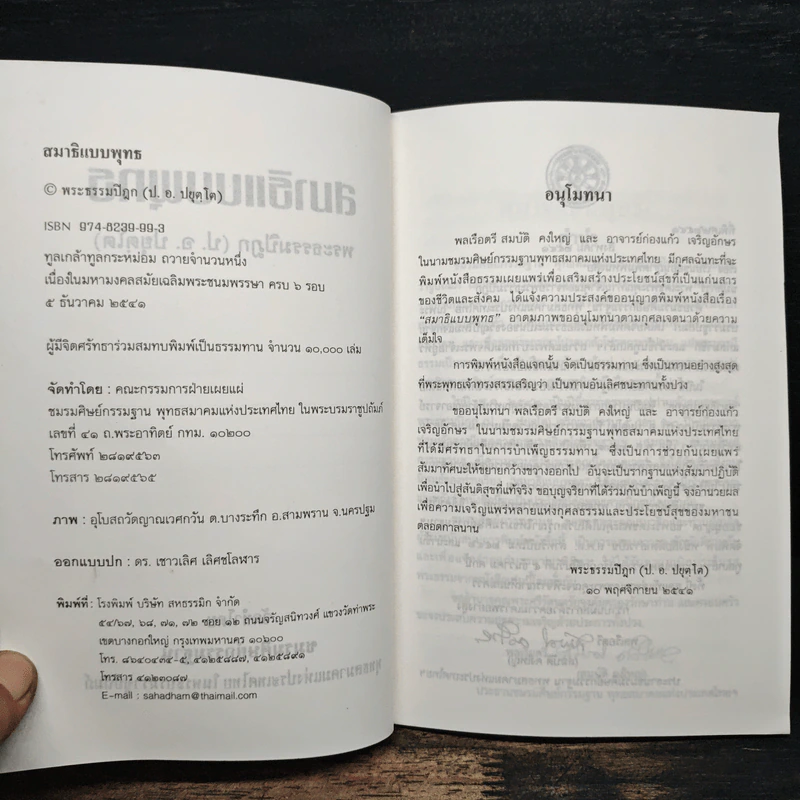 สมาธิแบบพุทธ
© พระธรรมปิฎก (ป. อ. ปยุตฺโต)
ISBN 974-8239-99-3
ทูลเกล้าทูลกระหม่อม ถวายจำนวนหนึ่ง
เนื่องในมหามงคลสมัยเฉลิมพระชนมพรรษา ครบ ๖ รอบ
๕ ธันวาคม ๒๕๔๑
ผู้มีจิตศรัทธาร่วมสมทบพิมพ์เป็นธรรมทาน จำนวน ๑๐,๐๐๐ เล่ม
จัดทำโดย : คณะกรรมการฝ่ายเผยแผ่
ชมรมศิษย์กรรมฐาน พุทธสมาคมแห่งประเทศไทย ในพระบรมราชูปถัมภ์
เลขที่ ๔๑ ถ.พระอาทิตย์ กทม. ๑๐๒๐๐
โทรศัพท์ ๒๘๑๙๕๖๓
โทรสาร ๒๘๑๙๕๖๕
ภาพ : อุโบสถวัดญาณเวศกวัน ต.บางระทึก อ.สามพราน จ.นครปฐม
ออกแบบปก : ดร. เชาวเลิศ เลิศชโลฬาร
พิมพ์ที่ : โรงพิมพ์ บริษัท สหธรรมิก จำกัด
๕๔/๖๗, ๖๘, ๗๑, ๗๒ ซอย ๑๒ ถนนจรัญสนิทวงศ์ แขวงวัดท่าพระ
เขตบางกอกใหญ่ กรุงเทพมหานคร ๑๐๖๐๐
โทร. ๘๖๔๐๔๓๔-๕, ๔๑๒๕๘๘๗, ๔๑๒๕๘๙๑
โทรสาร ๔๑๒๓๐๘๗
E-mail : sahadham@thaimail.com
อนุโมทนา
พลเรือตรี สมบัติ คงใหญ่ และ อาจารย์ก่องแก้ว เจริญอักษร
ในนามชมรมศิษย์กรรมฐานพุทธสมาคมแห่งประเทศไทย มีกุศลฉันทะที่จะ
พิมพ์หนังสือธรรมเผยแพร่เพื่อเสริมสร้างประโยชน์สุขที่เป็นแก่นสาร
ของชีวิตและสังคม ได้แจ้งความประสงค์ขออนุญาตพิมพ์หนังสือเรื่อง
“สมาธิแบบพุทธ” อาตมภาพขออนุโมทนาตามกุศลเจตนาด้วยความ
เต็มใจ
การพิมพ์หนังสือแจกนั้น จัดเป็นธรรมทาน ซึ่งเป็นทานอย่างสูงสุด
ที่พระพุทธเจ้าทรงสรรเสริญว่า เป็นทานอันเลิศชนะทานทั้งปวง
ขออนุโมทนา พลเรือตรี สมบัติ คงใหญ่ และ อาจารย์ก่องแก้ว
เจริญอักษร ในนามชมรมศิษย์กรรมฐานพุทธสมาคมแห่งประเทศไทย
ที่ได้มีศรัทธาในการบำเพ็ญธรรมทาน ซึ่งเป็นการช่วยกันเผยแพร่
สัมมาทัศนะให้ขยายกว้างขวางออกไป อันจะเป็นรากฐานแห่งสัมมาปฏิบัติ
เพื่อนำไปสู่สันติสุขที่แท้จริง ขอบุญจริยาที่ได้ร่วมกันบำเพ็ญนี้ จงอำนวยผล
เพื่อความเจริญแพร่หลายแห่งกุศลธรรมและประโยชน์สุขของมหาชน
ตลอดกาลนาน
พระธรรมปิฎก (ป. อ. ปยุตฺโต)
๑๐ พฤศจิกายน ๒๕๔๑